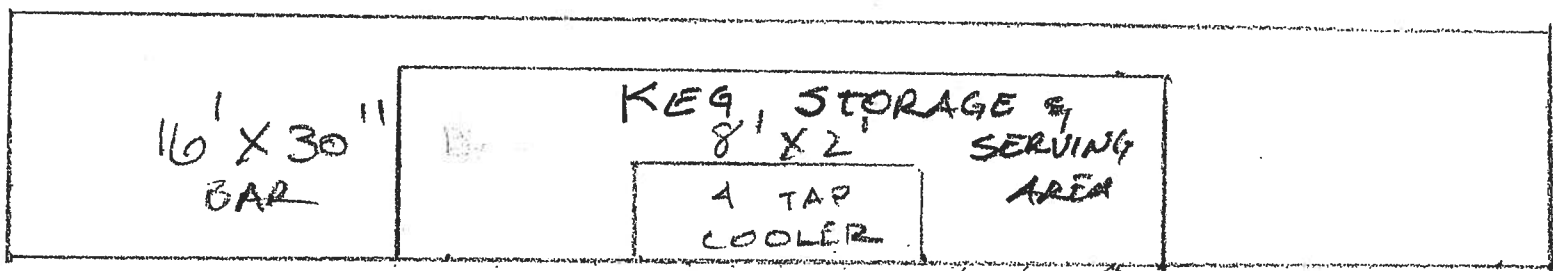 16' X 30"
BAR
KEG, STORAGE &
8' X 2'
SERVING
AREA
4 TAP
COOLER